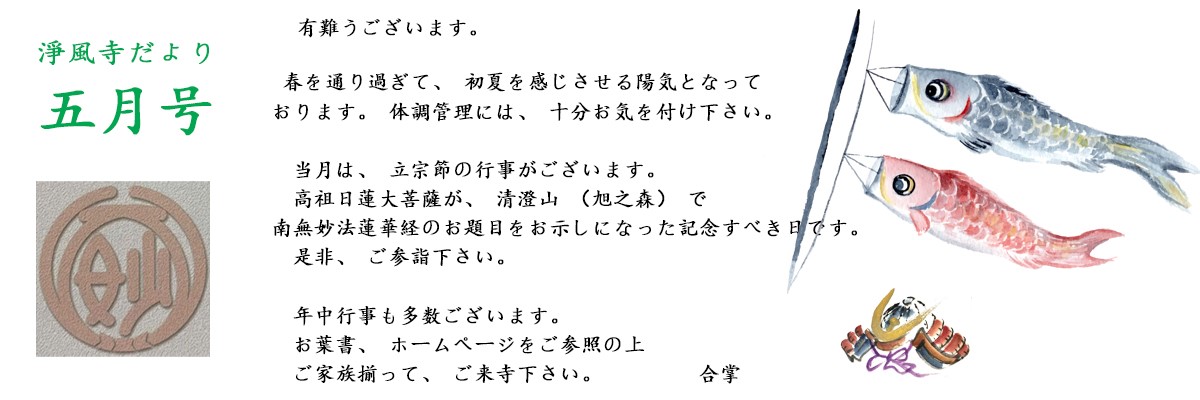 淨風寺だより
五月号
妙
有難うございます。
春を通り過ぎて、 初夏を感じさせる陽気となって
おります。 体調管理には、 十分お気を付け下さい。
当月は、 立宗節の行事がございます。
高祖日蓮大菩薩が、 清澄山 （旭之森） で
南無妙法蓮華経のお題目をお示しになった記念すべき日です。
是非、 ご参詣下さい。
年中行事も多数ございます。
お葉書、 ホームページをご参照の上
ご家族揃って、 ご来寺下さい。 合掌